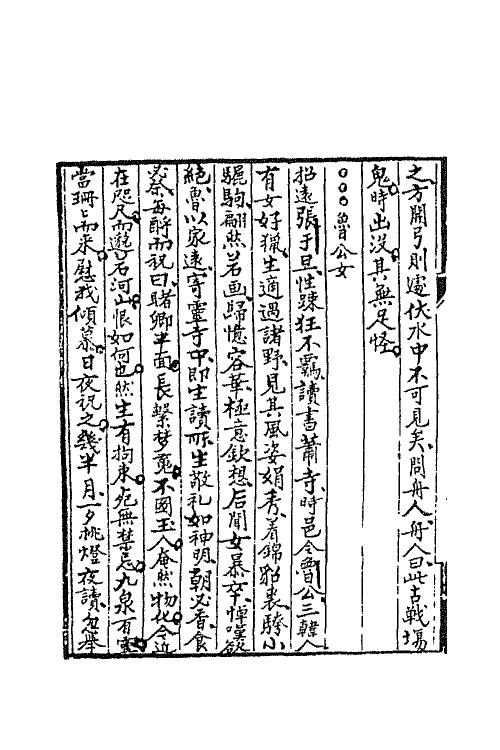 之方開弓則遽伏水中不可見矣問舟人舟人曰此古戰場
鬼時出沒其無足怪
○○○魯公女
招遠張于旦性疎狂不羈讀書蕭寺時邑令魯公三韓人
有女好獵生適遇諸野見其風姿娟秀着錦貂裘跨小
驪駒翩然若画歸憶容華極意欽想后聞女暴卒悼嘆欲
絕魯以家遠寄靈寺中即生讀所生敬礼如神明朝必香食
必祭每酹而祝曰睹卿半面長繫梦魂不圖玉人奄然物化今近
在咫尺而邈若河山恨如何也然生有拘束死無禁忌九泉有靈
當珊珊而來慰我傾慕日夜祝之幾半月一夕挑燈夜讀忽舉